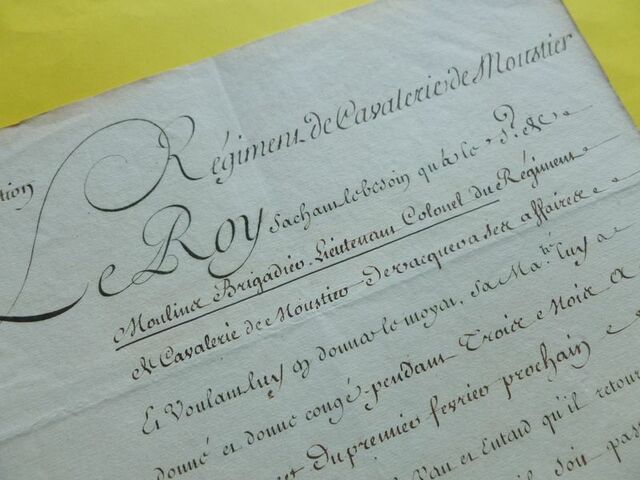 Régiment de Cavalerie de Moustier
tion
Le Roy Sachant le besoin qu'a le Sr. de
Moulins Brigadier, Lieutenant Colonel du Régiment
de Cavalerie de Moustier De vacquer a ses affaires
Et Voulant luy en donner le moyen, Sa Maté. luy a
donné et donne congé pendant Trois Mois a
du premier fevrier prochain
l'an et Entend qu'il retour
soit pas